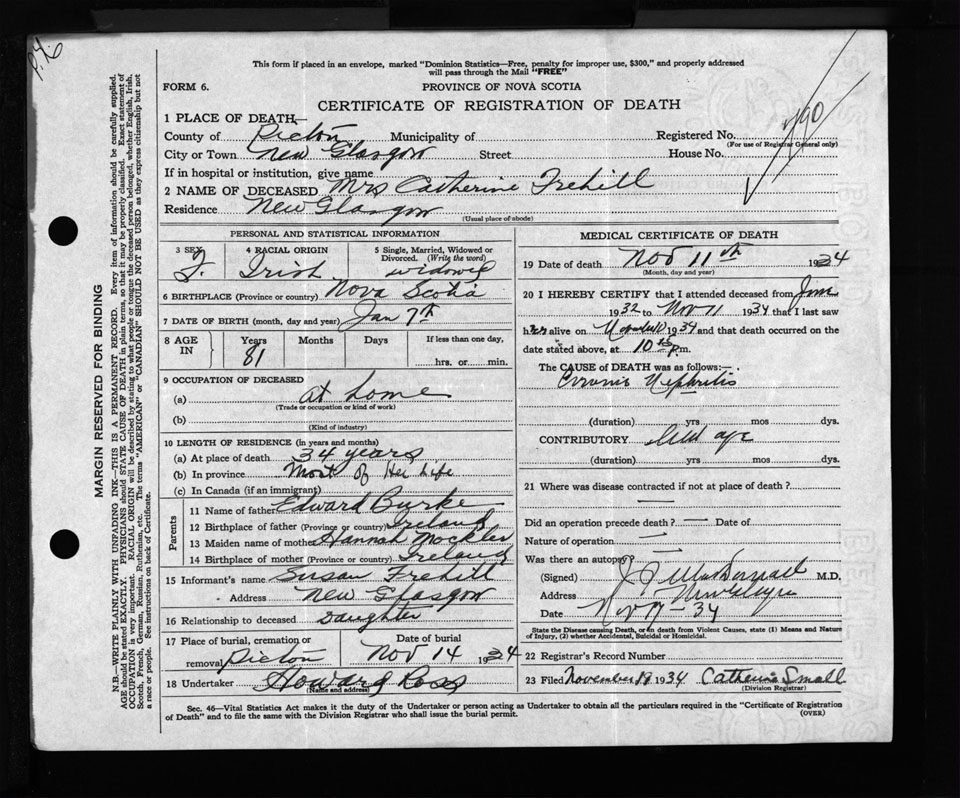 P.46
This form if placed in an envelope, marked "Dominion Statistics—Free, penalty for improper use, $300," and properly addressed
will pass through the Mail "FREE"
FORM 6.
PROVINCE OF NOVA SCOTIA
CERTIFICATE OF REGISTRATION OF DEATH
1 PLACE OF DEATH,—
County of Pictou Municipality of Registered No. 490
(For use of Registrar General only)
City or Town New Glasgow Street House No.
If in hospital or institution, give name
2 NAME OF DECEASED Mrs Catherine Frehill
Residence New Glasgow
(Usual place of abode)
PERSONAL AND STATISTICAL INFORMATION
3 SEX 4 RACIAL ORIGIN 5 Single, Married, Widowed or
Divorced. (Write the word)
F. Irish widowed
6 BIRTHPLACE (Province or country) Nova Scotia
7 DATE OF BIRTH (month, day and year) Jan 7th
8 AGE IN Years Months Days If less than one day,
81 hrs. or min.
9 OCCUPATION OF DECEASED
(a) at home
(Trade or occupation or kind of work)
(b)
(Kind of industry)
10 LENGTH OF RESIDENCE (in years and months)
(a) At place of death 34 years
(b) In province Most of Her Life
(c) In Canada (if an immigrant)
Parents
11 Name of father Edward Burke
12 Birthplace of father (Province or country) Ireland
13 Maiden name of mother Hannah Mockler
14 Birthplace of mother (Province or country) Ireland
15 Informant's name Susan Frehill
Address New Glasgow
16 Relationship to deceased Daughter
17 Place of burial, cremation or Date of burial
removal Pictou Nov 14 1934
18 Undertaker Howard Ross
(Name and address)
MEDICAL CERTIFICATE OF DEATH
19 Date of death Nov 11th 1934
(Month, day and year)
20 I HEREBY CERTIFY that I attended deceased from
1932 to Nov 11 1934 that I last saw
her alive on 1934 and that death occurred on the
date stated above, at 10 p.m.
The CAUSE of DEATH was as follows:—
Chronic Nephritis
(duration) yrs mos dys.
CONTRIBUTORY Old age
(duration) yrs mos dys.
21 Where was disease contracted if not at place of death?
—
Did an operation precede death? — Date of
Nature of operation —
Was there an autopsy? —
(Signed) M.D.
Address New Glasgow
Date Nov 17 - 34
State the Disease causing Death, or in death from Violent Causes, state (1) Means and Nature
of Injury, (2) whether Accidental, Suicidal or Homicidal.
22 Registrar's Record Number
23 Filed November 19 1934 Catherine Small
(Division Registrar)
Sec. 46—Vital Statistics Act makes it the duty of the Undertaker or person acting as Undertaker to obtain all the particulars required in the "Certificate of Registration
of Death" and to file the same with the Division Registrar who shall issue the burial permit.
(OVER)
MARGIN RESERVED FOR BINDING
N.B.—WRITE PLAINLY WITH UNFADING INK—THIS IS A PERMANENT RECORD. Every item of information should be carefully supplied.
AGE should be stated EXACTLY. PHYSICIANS should STATE CAUSE OF DEATH in plain terms, so that it may be properly classified. Exact statement of
OCCUPATION is very important. RACIAL ORIGIN will be described by stating to what people or tongue the deceased person belonged, whether English, Irish,
Scotch, French, German, Russian, Ruthenian, etc. The terms "AMERICAN" or "CANADIAN" SHOULD NOT BE USED as they express citizenship but not
a race or people. See instructions on back of Certificate.